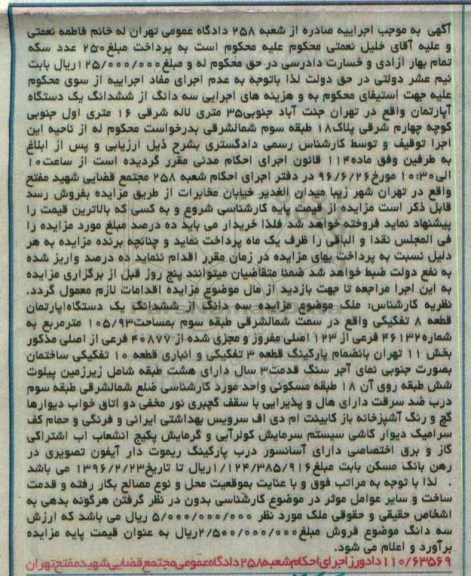 آگهی به موجب اجراییه صادره از شعبه ۲۵۸ دادگاه عمومی تهران له خانم فاطمه نعمتی
و علیه آقای خلیل نعمتی محکوم علیه محکوم است به پرداخت مبلغ۲۵۰ عدد سکه
تمام بهار ازادی و خسارت دادرسی در حق محکوم له و مبلغ۱۲۵/۰۰۰/۰۰۰ریال بابت
نیم عشر دولتی در حق دولت لذا باتوجه به عدم اجرای مفاد اجراییه از سوی محکوم
علیه جهت استیفای محکوم به و هزینه های اجرایی سه دانگ از ششدانگ یک دستگاه
آپارتمان واقع در تهران جنت آباد جنوبی۳۵ متری لاله شرقی ۱۶ متری اول جنوبی
کوچه چهارم شرقی پلاک۱۸ طبقه سوم شمالشرقی بدرخواست محکوم له از ناحیه این
اجرا توقیف و توسط کارشناس رسمی دادگستری بشرح ذیل ارزیابی و پس از ابلاغ
به طرفین وفق ماده۱۱۴ قانون اجرای احکام مدنی مقرر گردیده است از ساعت۱۰
الی۱۰:۳۰ مورخ۹۶/۶/۲۶ در دفتر اجرای احکام شعبه ۲۵۸ مجتمع قضایی شهید مفتح
واقع در تهران شهر زیبا میدان الغدیر خیابان مخابرات از طریق مزایده بفروش رسد
قابل ذکر است مزایده از قیمت پایه کارشناسی شروع و به کسی که بالاترین قیمت را
پیشنهاد نماید فروخته خواهد شد فلذا خریدار می باید ده درصد مبلغ مورد مزایده را
فی المجلس نقدا و الباقی را ظرف یک ماه پرداخت نماید و چنانچه برنده مزایده به هر
دلیل نسبت به پرداخت بهای مزایده در زمان مقرر اقدام ننماید ده درصد واریز شده
به نفع دولت ضبط خواهد شد ضمنا متقاضیان میتوانند پنج روز قبل از برگزاری مزایده
به این اجرا مراجعه تا جهت بازدید از مال موضوع مزایده اقدامات لازم معمول گردد.
نظریه کارشناس: ملک موضوع مزایده سه دانگ از ششدانگ یک دستگاه‌اپارتمان
قطعه ۸ تفکیکی واقع در سمت شمالشرقی طبقه سوم بمساحت۱۰۵/۹۳ مترمربع به
شماره۴۶۱۳۲ فرعی از ۱۲۳ اصلی مفروز و مجزی شده از ۴۰۸۷۷ فرعی از اصلی مذکور
بخش ۱۱ تهران بانضمام پارکینگ قطعه ۳ تفکیکی و انباری قطعه ۱۰ تفکیکی ساختمان
بصورت جنوبی نمای آجر سنگ قدمت۳ سال دارای هشت طبقه شامل زیرزمین پیلوت
شش طبقه روی آن ۱۸ طبقه مسکونی واحد مورد کارشناسی ضلع شمالشرقی طبقه سوم
درب ضد سرقت دارای هال و پذیرایی با سقف گچبری نور مخفی دو اتاق خواب دیوارها
گچ و رنگ آشپزخانه باز کابینت ام دی اف سرویس بهداشتی ایرانی و فرنگی و حمام کف
سرامیک دیوار کاشی سیستم سرمایش کولرآبی و گرمایش پکیج انشعاب اب اشتراکی
گاز و برق اختصاصی دارای آسانسور درب پارکینگ ریموت دار آیفون تصویری در
رهن بانک مسکن بابت مبلغ۱/۱۲۴/۳۸۵/۹۱۶ریال تا تاریخ۱۳۹۶/۲/۲۳ می باشد
لذا با توجه به مراتب فوق و با عنایت بموقعیت محل و نوع مصالح بکار رفته و قدمت
ساخت و سایر عوامل موثر در موضوع کارشناسی بدون در نظر گرفتن هرگونه بدهی به
اشخاص حقیقی و حقوقی ملک مورد نظر ۵/۰۰۰/۰۰۰/۰۰۰ ریال می باشد که ارزش
سه دانگ موضوع فروش مبلغ۲/۵۰۰/۰۰۰/۰۰۰ریال به عنوان قیمت پایه مزایده
برآورد و اعلام می شود.
۱۱۰/۶۳۵۶۹ دادورز اجرای احکام شعبه۲۵۸ دادگاه عمومی مجتمع قضایی شهید مفتح تهران